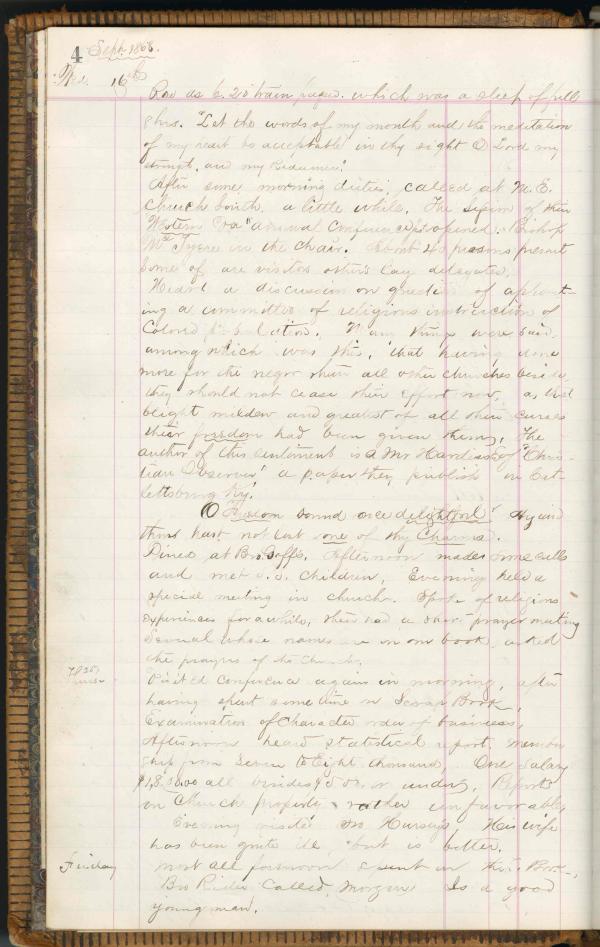 4 Sept. 1868.
Wed. 16th
Rose as 6.20 train passed. which was a sleep of full
8 hrs. "Let the words of my mouth and the meditation
of my heart be acceptable in thy sight O Lord my
strength, and my Redeemer."
After some morning duties, called at M. E.
Church South a little while. The session of their
Western Va "annual Conference" is opened. Bishop
McTyere in the chair. About 40 persons present
some of are visitors others lay delegates.
Heard a discussion on question of appoint-
ing a committee of religious instruction of
Colored population. Many things were said,
among which was this, "that having done
more for the negro than all other churches beside,
they should not cease their effort now, as that
blight mildew and greatest of all their curses
their freedom had been given them," The
author of this sentiment is a Mr of "Chris-
tian Observer" a paper they publish in Cat-
lettsburg Ky.
O Freedom sound once delightful!
thou hast not lost one of thy Charms.
Dined at Bro. Goffs. Afternoon made some calls
and met S.S. children, Evening held a
special meeting in church. Spoke of religious
experiences for a while, then had a short prayer meeting
Several whose names are in our book, asked
the prayers of the Church.
Thurs. Visited Conference again in morning, after
having spent some time in Scrap Book,
Examination of Character order of business,
Afternoon heard statistical report, member
ship from seven to Eight thousand, One Salary
all besides $500. or under, Reports
on Church property rather unfavorable,
Evening visited Mr Hursey's His wife
has been quite ill, but is better.
Friday most all forenoon spent in
Bro Rider Called, Is a good
young man.